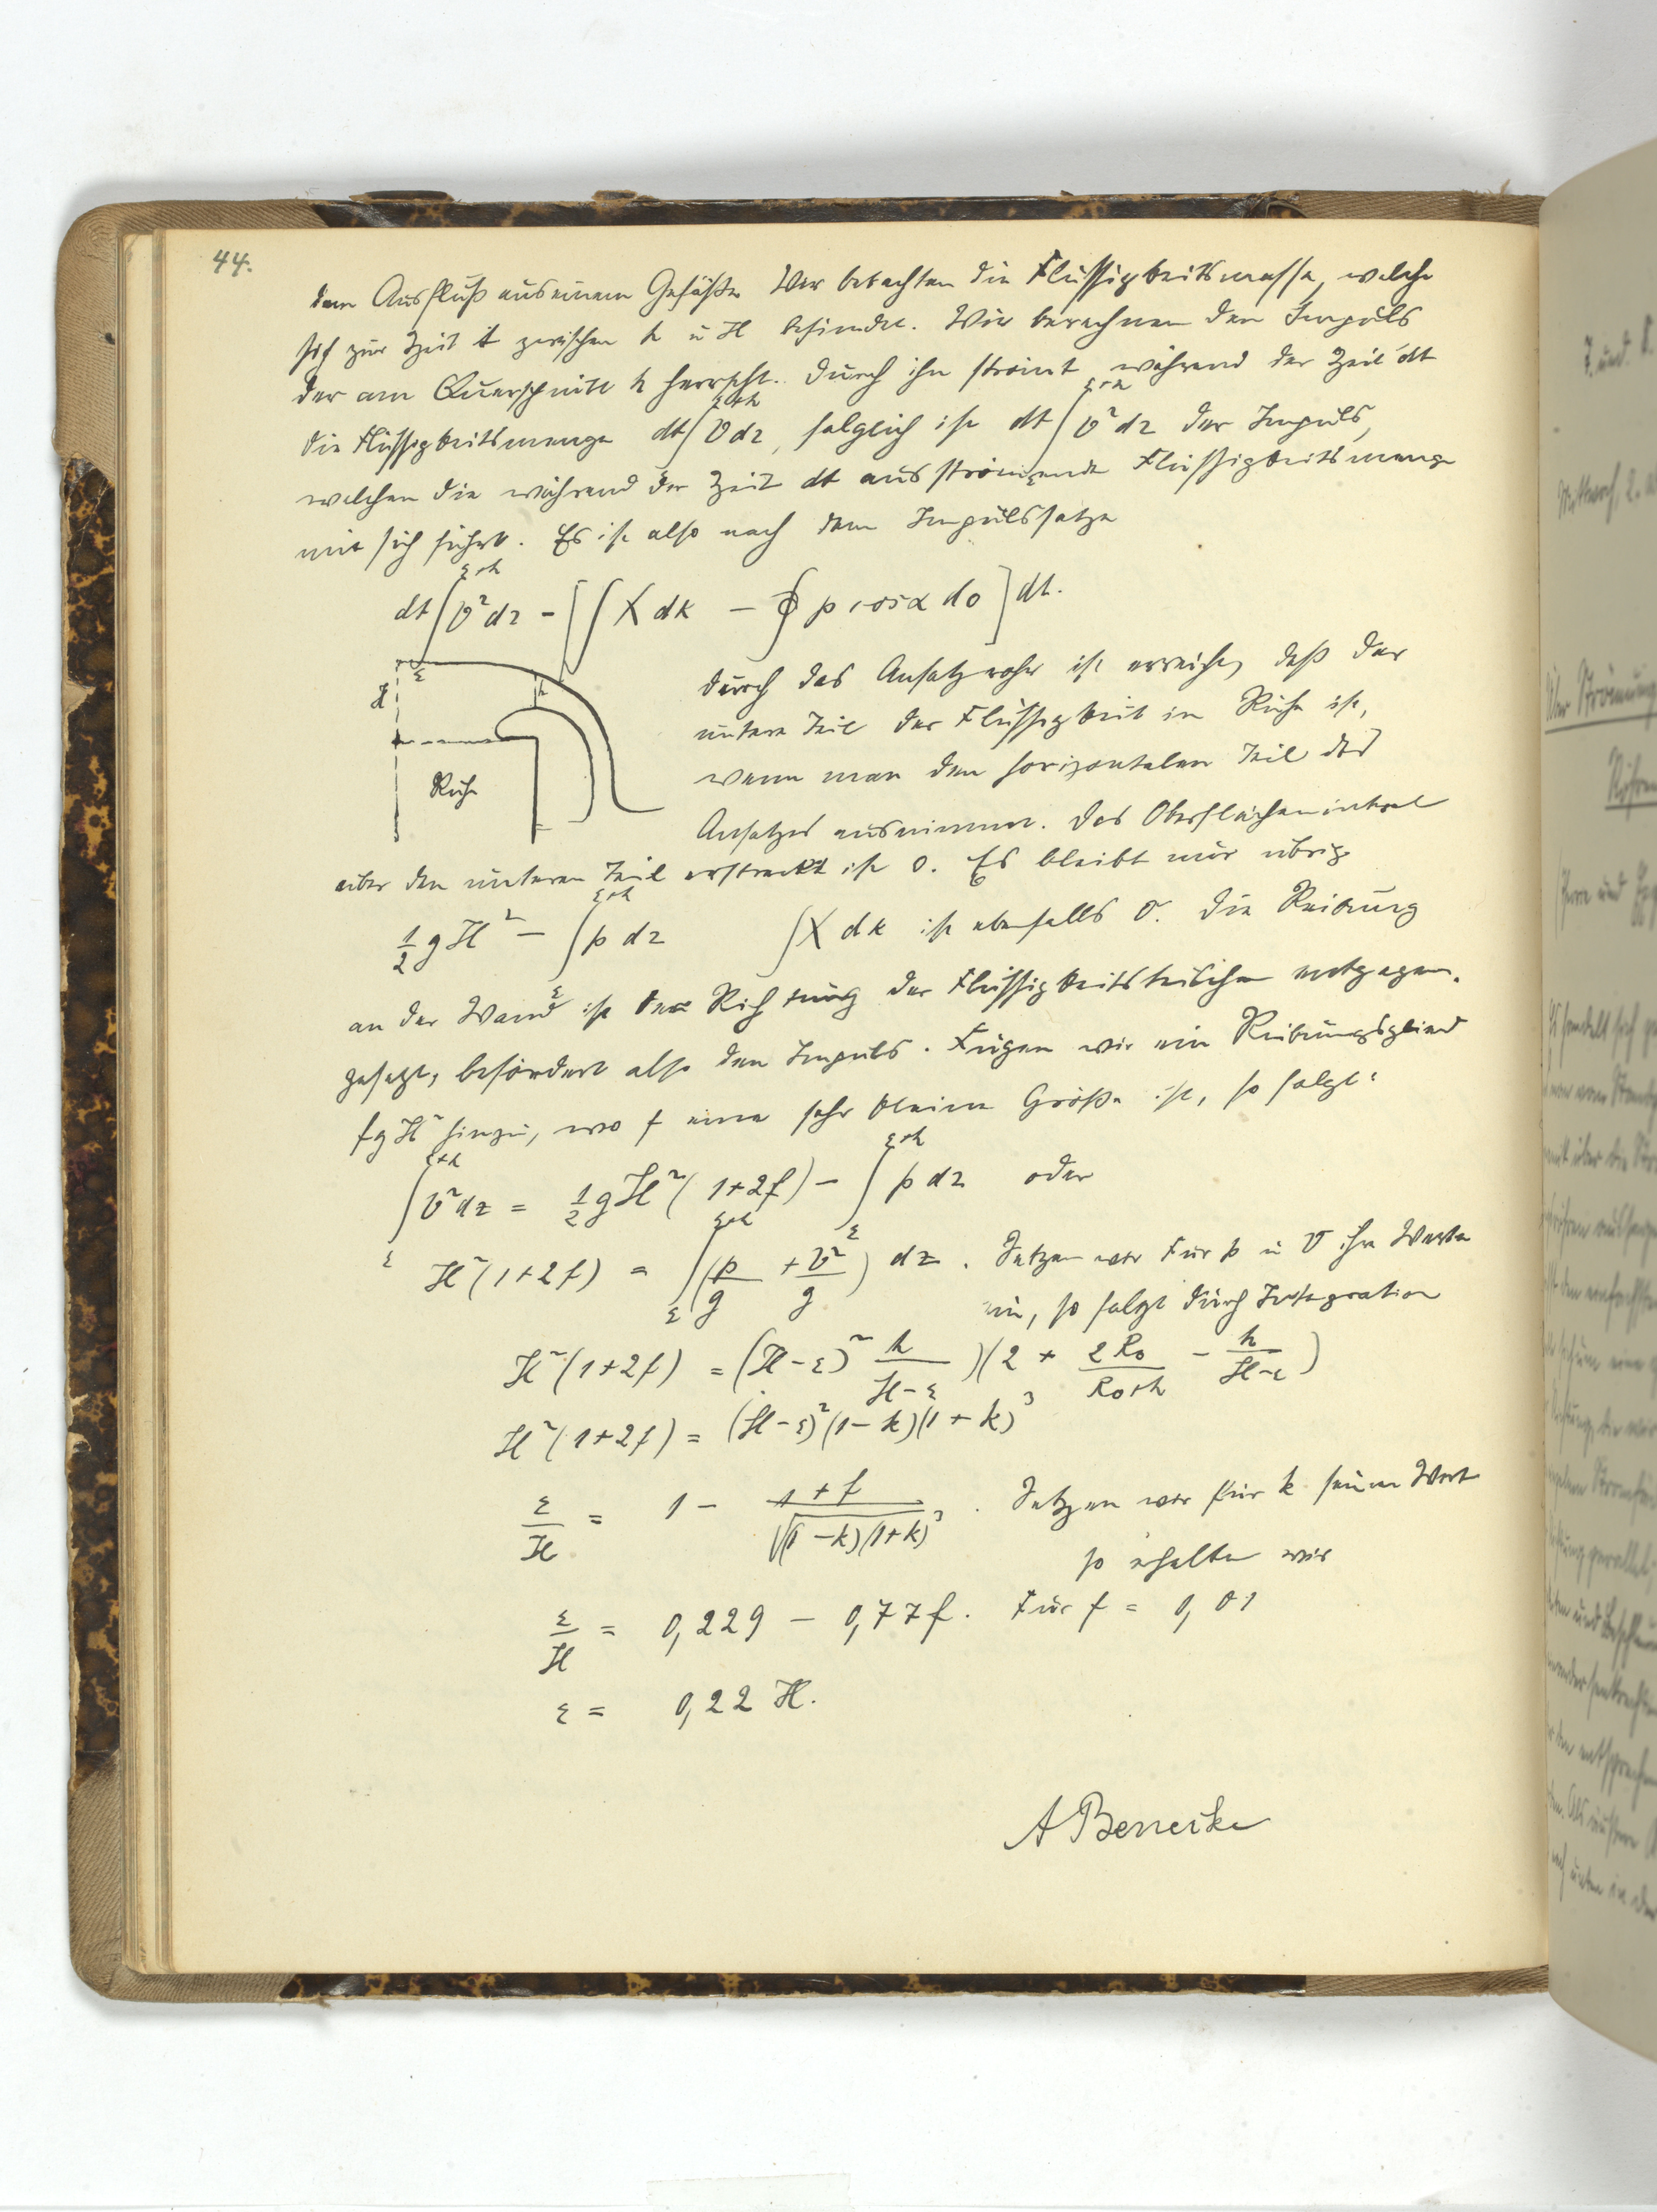 44.
dem Ausfluß aus einem Gefäße. Wir betrachten die Flüssigkeitsmasse, welche
sich zur Zeit t zwischen h u H befindet. Wir berechnen den Impuls
der am Querschnitt h herrscht. Durch ihn strömt während der Zeit dt
die Flüssigkeitsmenge dt ∫_ε^{ε+h} v dz, folglich ist dt ∫_ε^{ε+h} v² dz der Impuls,
welchen die während der Zeit dt ausströmende Flüssigkeitsmenge
mit sich führt. Es ist also nach dem Impulssatze
dt ∫_ε^{ε+h} v² dz = [∫ X dk − ∮ p cos α do] dt.
H ε h
Ruhe
Durch das Ansatzrohr ist erreicht, daß der
untere Teil der Flüssigkeit in Ruhe ist,
wenn man den horizontalen Teil des
Ansatzes ausnimmt. Das Oberflächenintegral
über den unteren Teil erstreckt ist 0. Es bleibt nur übrig
1/2 g H² − ∫_ε^{ε+h} p dz ∫ X dk ist ebenfalls 0. Die Reibung
an der Wand ist der Richtung der Flüssigkeitsteilchen entgegen-
gesetzt, befördert also den Impuls. Fügen wir ein Reibungsglied
f g H² hinzu, wo f eine sehr kleine Größe ist, so folgt:
∫_ε^{ε+h} v² dz = 1/2 g H² (1+2f) − ∫_ε^{ε+h} p dz oder
H² (1+2f) = ∫_ε^{ε+h} (p/g + v²/g) dz. Setzen wir für p u v ihre Werte
ein, so folgt durch Integration
H² (1+2f) = (H−ε)² h/(H−ε) )(2 + 2R₀/(R₀+h) − h/(H−ε))
H² (1+2f) = (H−ε)² (1−k)(1+k)³
ε/H = 1 − (1+f)/√((1−k)(1+k)³). Setzen wir für k seinen Wert
so erhalten wir
ε/H = 0,229 − 0,77 f. Für f = 0,01
ε = 0,22 H.
A Bennecke